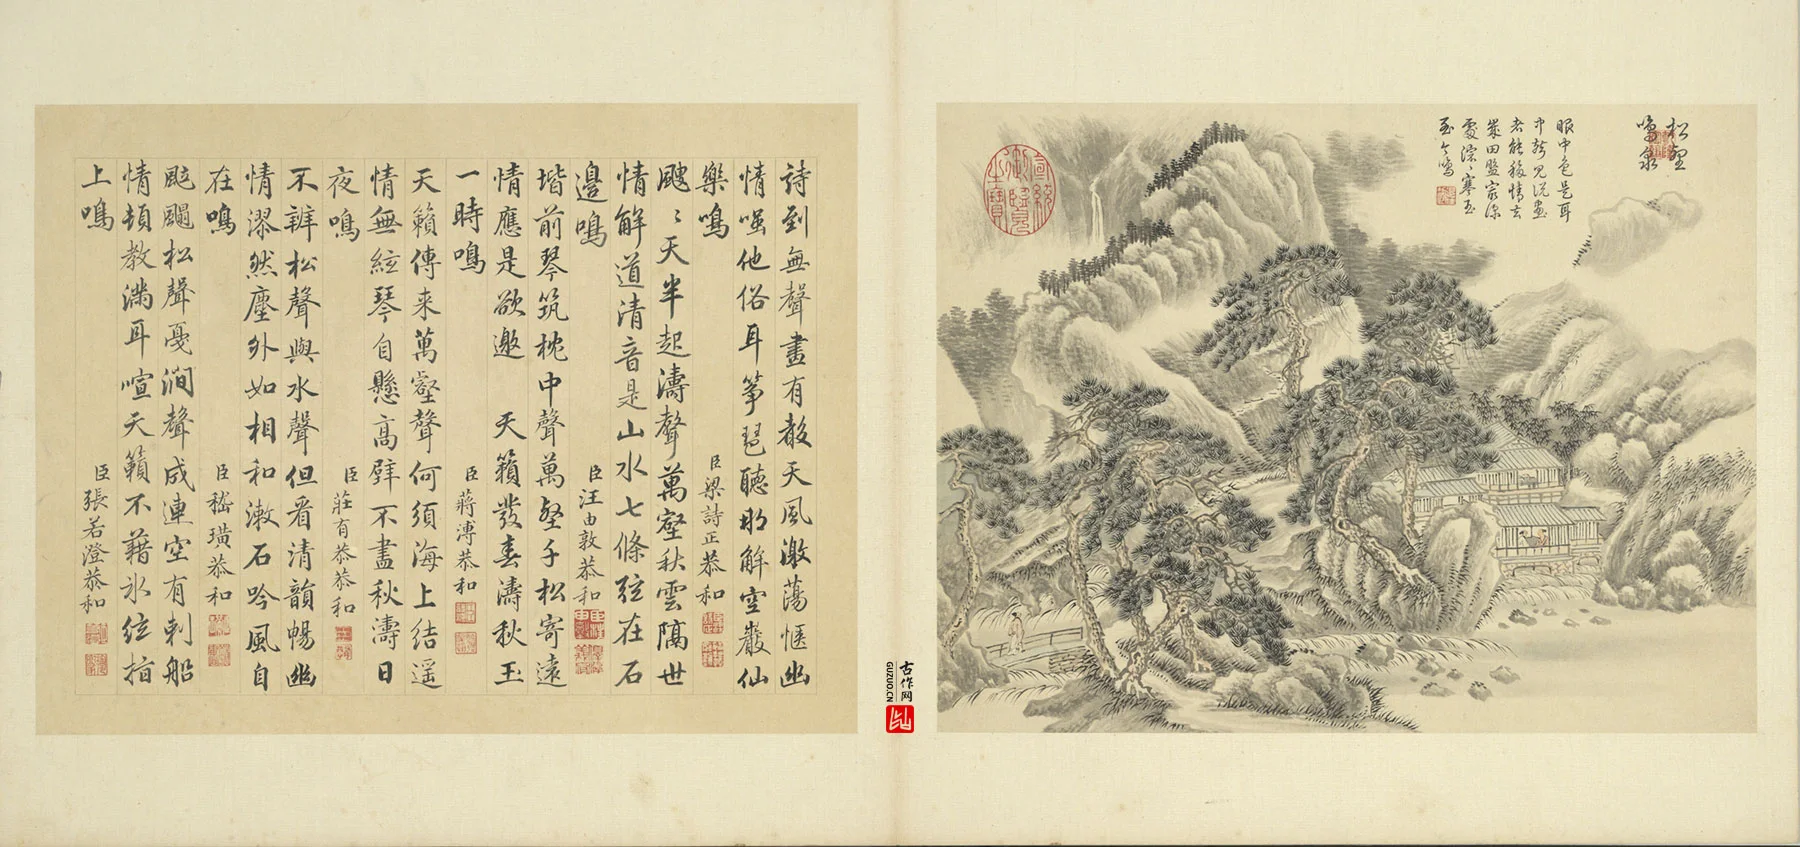 松壑
鳴泉
眼中色是耳
中
者能移情去
寒玉
詩到無聲畫有穀天風激蕩愜幽
情嗤他俗耳箏琶聽那解空巖仙
樂鳴
臣梁詩正恭和
颼〻天半起濤聲萬壑秋雲隔世
情解道清音是山水七條弦在石
邊鳴
臣汪由敦恭和
堦前琴筑枕中聲萬壑千松寄遠
情應是欲邀天籟發春濤秋玉
一時鳴
臣蔣溥恭和
天籟傳来萬壑聲何須海上結遥
情無絃琴自懸高壁不盡秋濤日
夜鳴
臣莊有恭恭和
不辨松聲與水聲但看清韻暢幽
情漻然塵外如相和漱石吟風自
在鳴
臣嵇璜恭和
颭颸松聲戞澗聲成連空有刺船
情頓教滿耳喧天籟不藉氷絃指
上鳴
臣張若澄恭和
宣統御覽之寶
古作网
GUZUO.CN